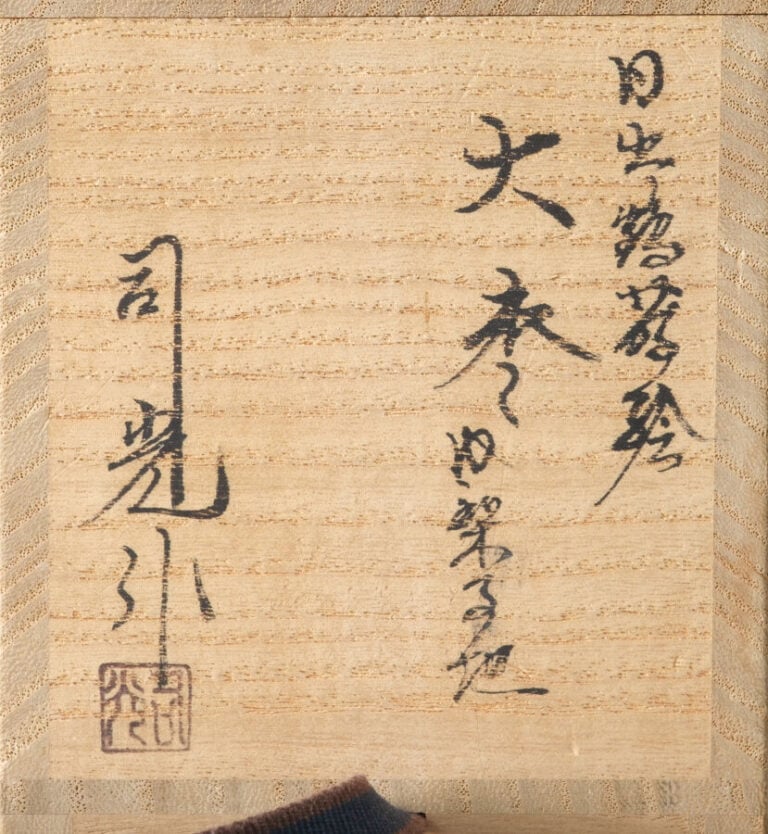 日出鶴蒔絵
大棗
内梨子地
司光作
司光